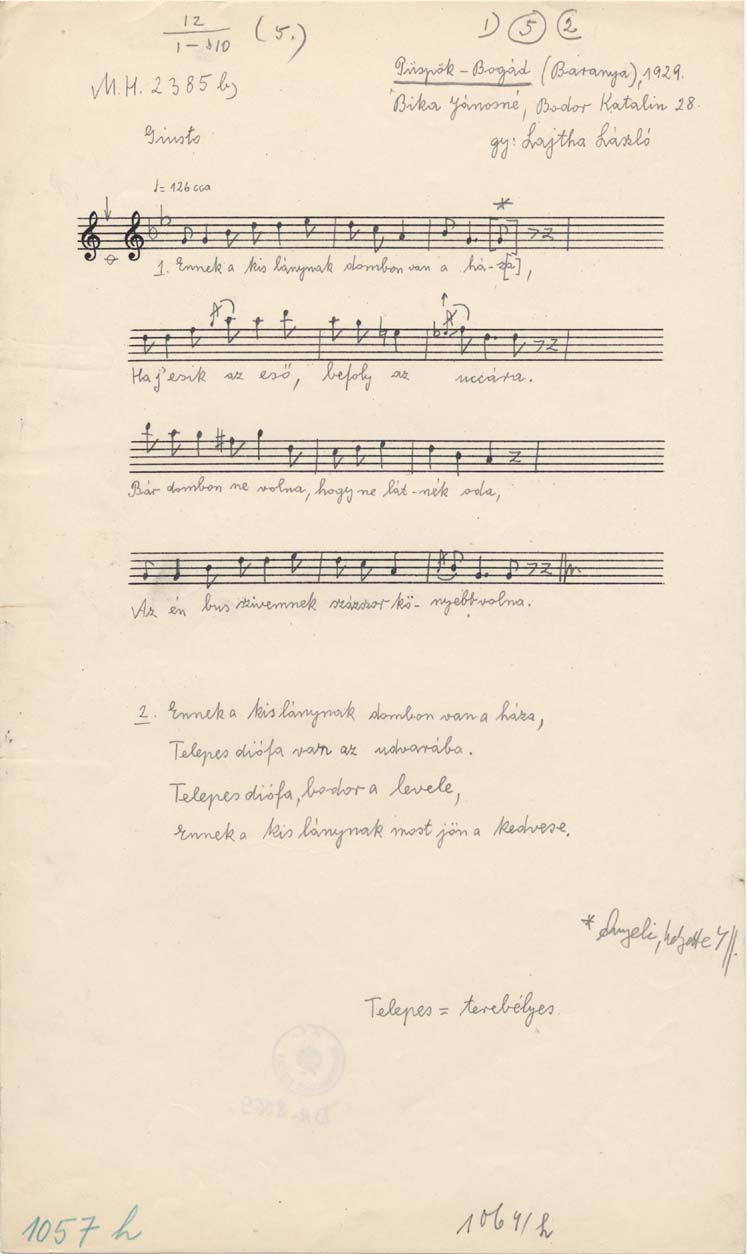 12
1-♪10 (5.)
1) 5 2
M.H. 2385 b)
Püspök-Bogád (Baranya), 1929.
Bika Jánosné, Bodor Katalin 28.
Giusto
gy: Lajtha László
♩= 126 cca
*
1. Ennek a kis lánynak dombon van a há-z[a],
Haj' esik az eső, befoly az uccára.
Bár dombon ne volna, hogy ne lát-nék oda,
Az én bus szivemnek százszor kö-nyebb volna.
2. Ennek a kis lánynak dombon van a háza,
Telepes diófa van az udvarába.
Telepes diófa, bodor a levele,
Ennek a kis lánynak most jön a kedvese.
* helyette
Telepes = terebélyes.
1057 h
1064/h